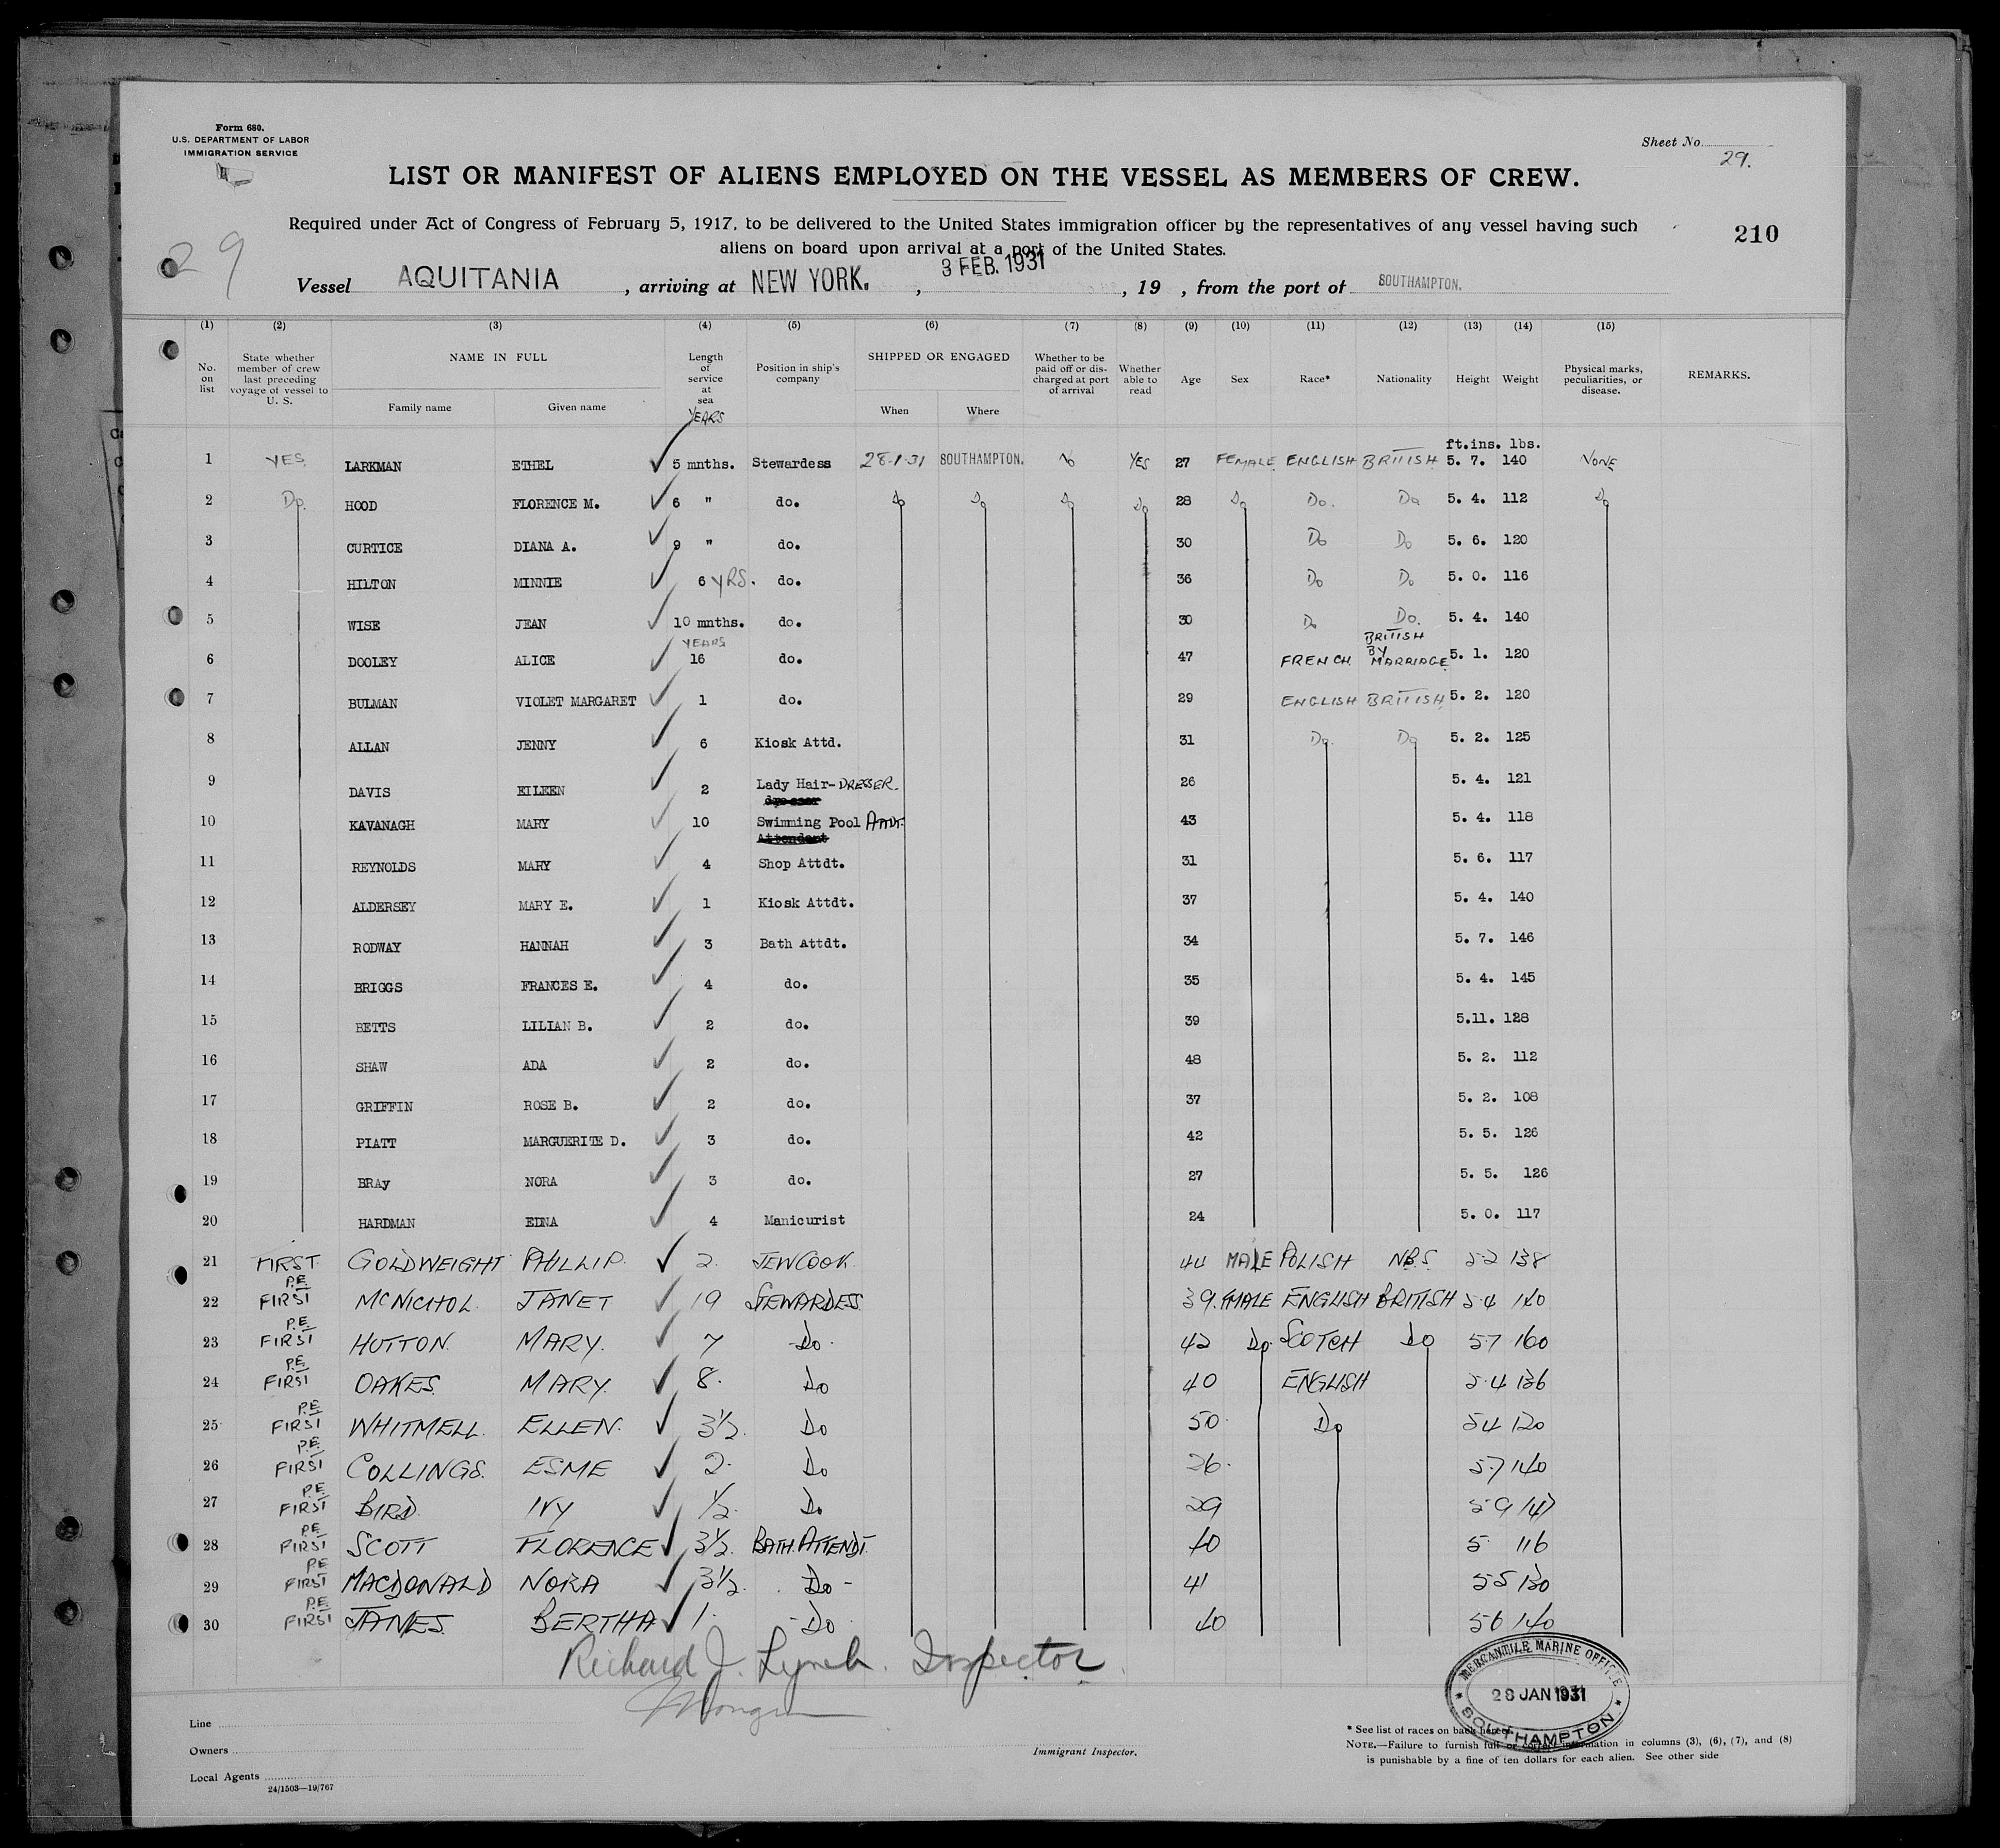 Form 680.
U.S. DEPARTMENT OF LABOR
IMMIGRATION SERVICE
Sheet No. 29.
LIST OR MANIFEST OF ALIENS EMPLOYED ON THE VESSEL AS MEMBERS OF CREW.
Required under Act of Congress of February 5, 1917, to be delivered to the United States immigration officer by the representatives of any vessel having such
aliens on board upon arrival at a port of the United States.
210
29
Vessel AQUITANIA, arriving at NEW YORK., 3 FEB. 1931, 19 , from the port of SOUTHAMPTON.
(1) (2) (3) (4) (5) (6) (7) (8) (9) (10) (11) (12) (13) (14) (15)
No. on list
State whether member of crew last preceding voyage of vessel to U. S.
NAME IN FULL
Family name Given name
Length of service at sea
YEARS
Position in ship's company
SHIPPED OR ENGAGED
When Where
Whether to be paid off or discharged at port of arrival
Whether able to read
Age Sex Race* Nationality Height Weight
Physical marks, peculiarities, or disease.
REMARKS.
ft.ins. lbs.
1 YES. LARKMAN ETHEL 5 mnths. Stewardess 28-1-31 SOUTHAMPTON. No YES 27 FEMALE ENGLISH BRITISH 5. 7. 140 NONE
2 Do. HOOD FLORENCE M. 6 " do. Do Do Do Do 28 Do Do. Do 5. 4. 112 Do
3 CURTICE DIANA A. 9 " do. 30 Do Do 5. 6. 120
4 HILTON MINNIE 6 YRS. do. 36 Do Do 5. 0. 116
5 WISE JEAN 10 mnths. do. 30 Do Do. 5. 4. 140
6 DOOLEY ALICE YEARS 16 do. 47 FRENCH BRITISH BY MARRIAGE 5. 1. 120
7 BULMAN VIOLET MARGARET 1 do. 29 ENGLISH BRITISH 5. 2. 120
8 ALLAN JENNY 6 Kiosk Attd. 31 Do. Do 5. 2. 125
9 DAVIS EILEEN 2 Lady Hair-DRESSER. dresser 26 5. 4. 121
10 KAVANAGH MARY 10 Swimming Pool ATTDT. Attendant 43 5. 4. 118
11 REYNOLDS MARY 4 Shop Attdt. 31 5. 6. 117
12 ALDERSEY MARY E. 1 Kiosk Attdt. 37 5. 4. 140
13 RODWAY HANNAH 3 Bath Attdt. 34 5. 7. 146
14 BRIGGS FRANCES E. 4 do. 35 5. 4. 145
15 BETTS LILIAN B. 2 do. 39 5.11. 128
16 SHAW ADA 2 do. 48 5. 2. 112
17 GRIFFIN ROSE B. 2 do. 37 5. 2. 108
18 PIATT MARGUERITE D. 3 do. 42 5. 5. 126
19 BRAy NORA 3 do. 27 5. 5. 126
20 HARDMAN EDNA 4 Manicurist 24 5. 0. 117
21 FIRST. GOLDWEIGHT PHILLIP. 2. JEW COOK. 44 MALE POLISH N.B.S. 5-2 138
22 P.E. FIRST McNICHOL. JANET 19 STEWARDESS 39. FMALE ENGLISH BRITISH 5.4 140
23 P.E. FIRST HUTTON. MARY. 7 Do. 42 Do. SCOTCH DO 5.7 160
24 P.E. FIRST OAKES. MARY. 8. Do 40 ENGLISH 5.4 136
25 P.E. FIRST WHITMELL. ELLEN. 3½. Do 50. Do 54 120
26 P.E. FIRST COLLINGS. ESME 2. Do 26. 57 140
27 P.E. FIRST BIRD. IVY ½. Do 29 59 147
28 P.E. FIRST SCOTT FLORENCE 3½. BATH.ATTENDT. 40 5. 116
29 P.E. FIRST MACDONALD NORA 3½. Do - 41 55 130
30 P.E. FIRST JAMES. BERTHA 1. - Do 40 56 140
Richard J. Lynch. Inspector.
MERCANTILE MARINE OFFICE
28 JAN 1931
SOUTHAMPTON
Line
Owners
Local Agents
24/1503—19/767
Immigrant Inspector.
* See list of races on back hereof.
NOTE.—Failure to furnish full or correct information in columns (3), (6), (7), and (8)
is punishable by a fine of ten dollars for each alien. See other side